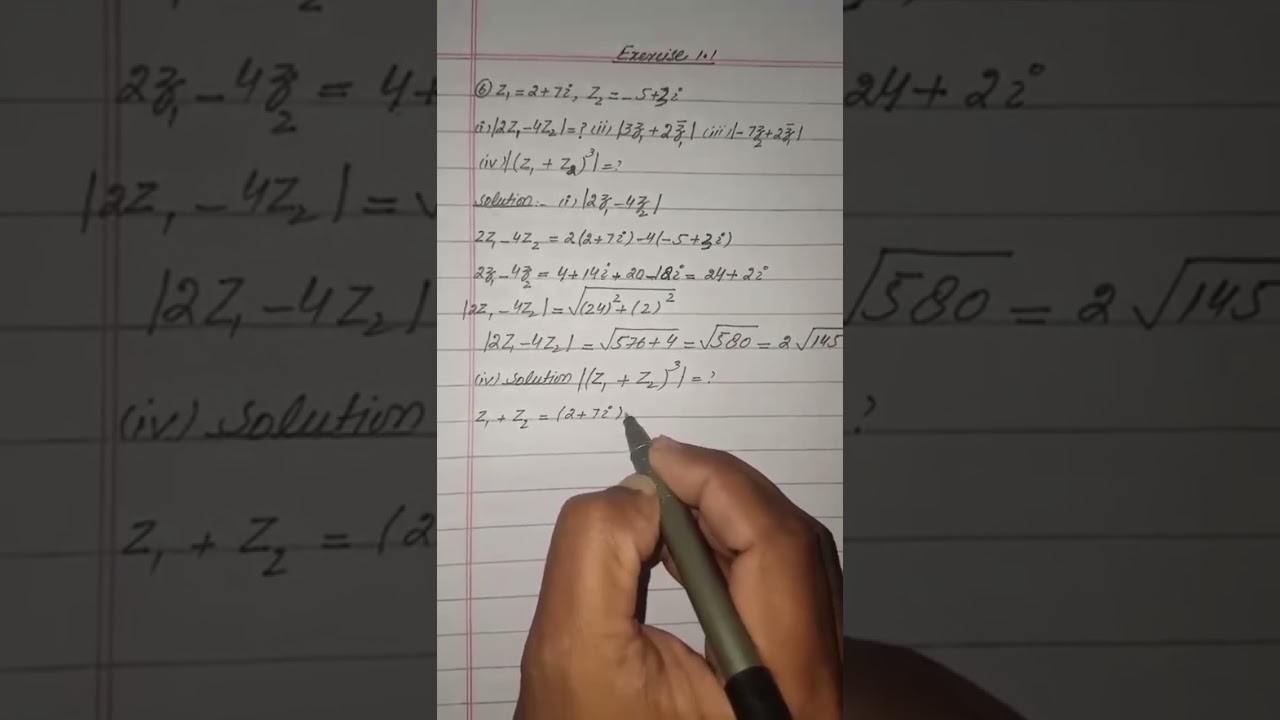 Exercise 1.1
⑥ Z₁ = 2+7i, Z₂ = -5+3i
(i) |2Z₁-4Z₂| = ? (ii) |3z₁ + 2z̄₁| (iii) |-7z₂+2z̄₁|
(iv) |(Z₁ + Z₂)³| = ?
Solution:- (i) |2z₁-4z₂|
2Z₁-4Z₂ = 2(2+7i)-4(-5+3i)
2z₁-4z₂ = 4+14i+20-12i = 24+2i
|2Z₁-4Z₂| = √(24)²+(2)²
|2Z₁-4Z₂| = √576+4 = √580 = 2√145
(iv) Solution |(Z₁ + Z₂)³| = ?
Z₁ + Z₂ = (2+7i)